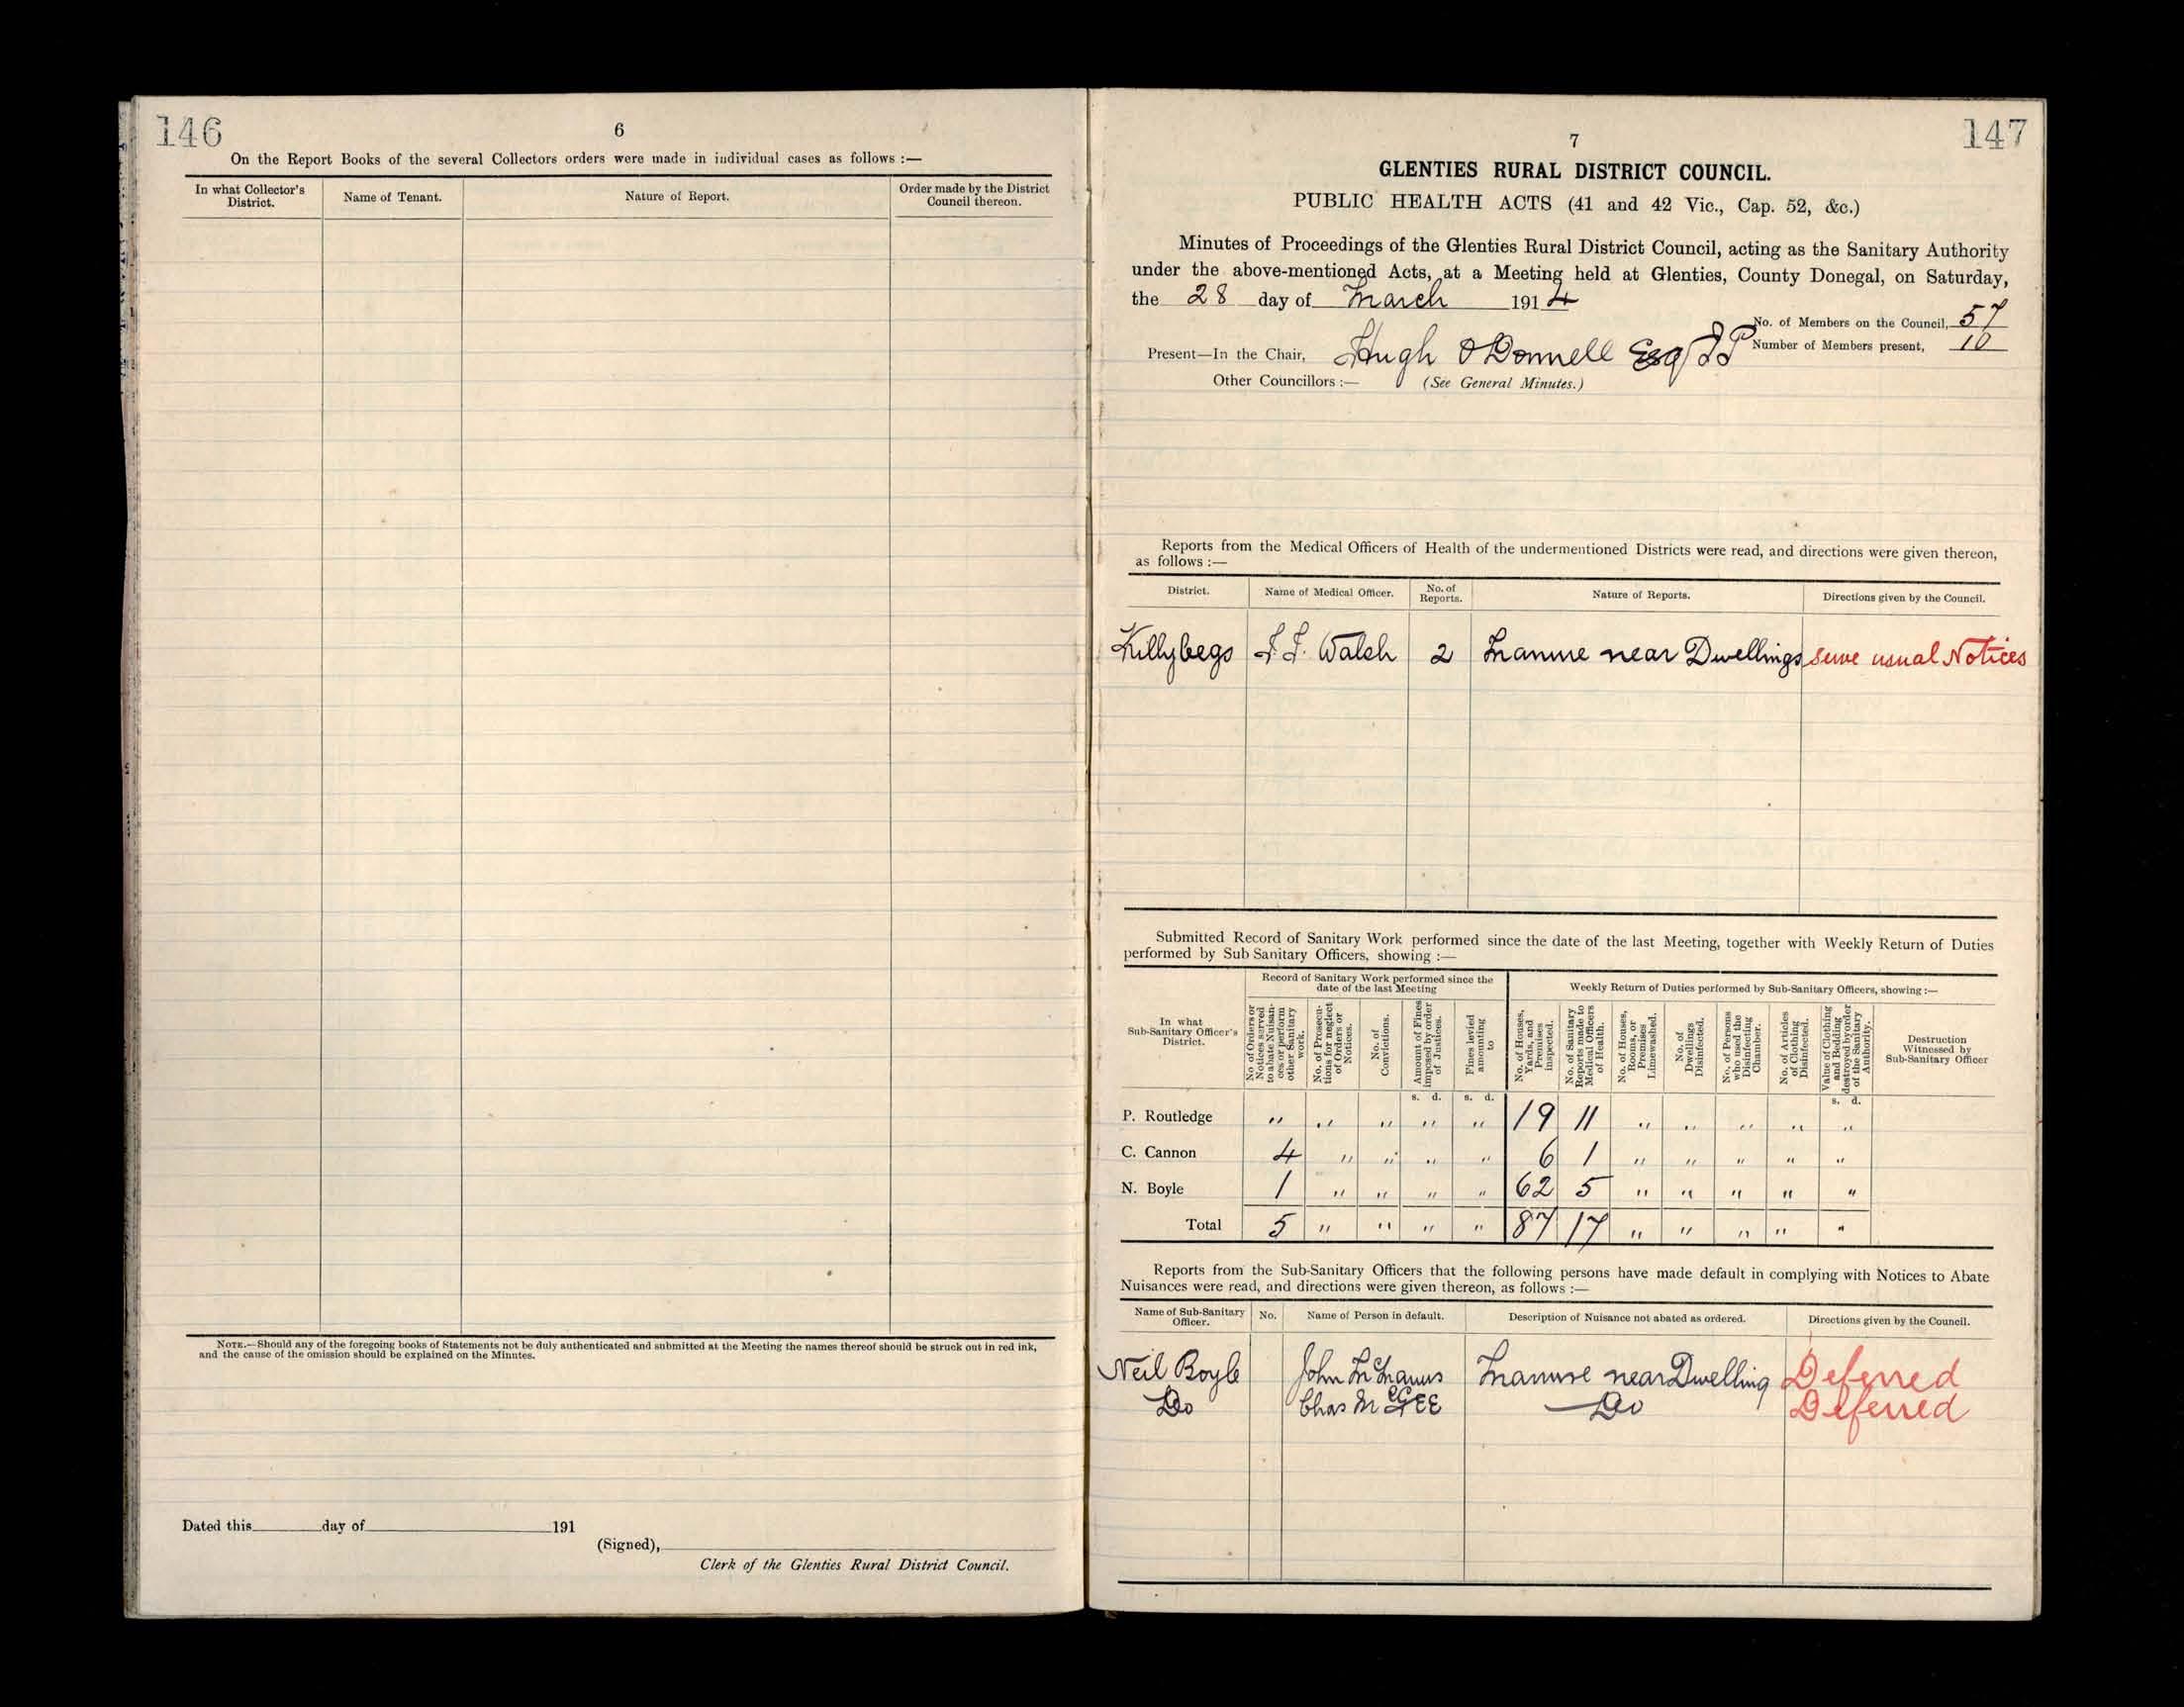 146
6
On the Report Books of the several Collectors orders were made in individual cases as follows :—
In what Collector's District.
Name of Tenant.
Nature of Report.
Order made by the District Council thereon.
NOTE.—Should any of the foregoing books of Statements not be duly authenticated and submitted at the Meeting the names thereof should be struck out in red ink,
and the cause of the omission should be explained on the Minutes.
Dated this day of 191
(Signed),
Clerk of the Glenties Rural District Council.
147
7
GLENTIES RURAL DISTRICT COUNCIL.
PUBLIC HEALTH ACTS (41 and 42 Vic., Cap. 52, &c.)
Minutes of Proceedings of the Glenties Rural District Council, acting as the Sanitary Authority
under the above-mentioned Acts, at a Meeting held at Glenties, County Donegal, on Saturday,
the 28 day of March 1914
No. of Members on the Council, 57
Present—In the Chair, Hugh O'Donnell Esq JP Number of Members present, 10
Other Councillors :— (See General Minutes.)
Reports from the Medical Officers of Health of the undermentioned Districts were read, and directions were given thereon,
as follows :—
District. Name of Medical Officer. No. of Reports. Nature of Reports. Directions given by the Council.
Killybegs J. F. Walsh 2 Manure near Dwellings serve usual Notices
Submitted Record of Sanitary Work performed since the date of the last Meeting, together with Weekly Return of Duties
performed by Sub Sanitary Officers, showing :—
In what Sub-Sanitary Officer's District.
Record of Sanitary Work performed since the date of the last Meeting
Weekly Return of Duties performed by Sub-Sanitary Officers, showing :—
No of Orders or Notices served to abate Nuisances or perform other Sanitary work.
No. of Prosecutions for neglect of Orders or Notices.
No. of Convictions.
Amount of Fines imposed by order of Justices.
Fines levied amounting to
No. of Houses, Yards, and Premises inspected.
No. of Sanitary Reports made to Medical Officers of Health.
No. of Houses, Rooms, or Premises Limewashed.
No. of Dwellings Disinfected.
No. of Persons who used the Disinfecting Chamber.
No. of Articles of Clothing Disinfected.
Value of Clothing and Bedding destroyed by order of the Sanitary Authority.
Destruction Witnessed by Sub-Sanitary Officer
s. d. s. d. s. d.
P. Routledge " " " " " 19 11 " " " " "
C. Cannon 4 " " " " 6 1 " " " " "
N. Boyle 1 " " " " 62 5 " " " " "
Total 5 " " " " 87 17 " " " " "
Reports from the Sub-Sanitary Officers that the following persons have made default in complying with Notices to Abate
Nuisances were read, and directions were given thereon, as follows :—
Name of Sub-Sanitary Officer. No. Name of Person in default. Description of Nuisance not abated as ordered. Directions given by the Council.
Neil Boyle John McManus Manure near Dwelling Deferred
Do Chas McGEE Do Deferred